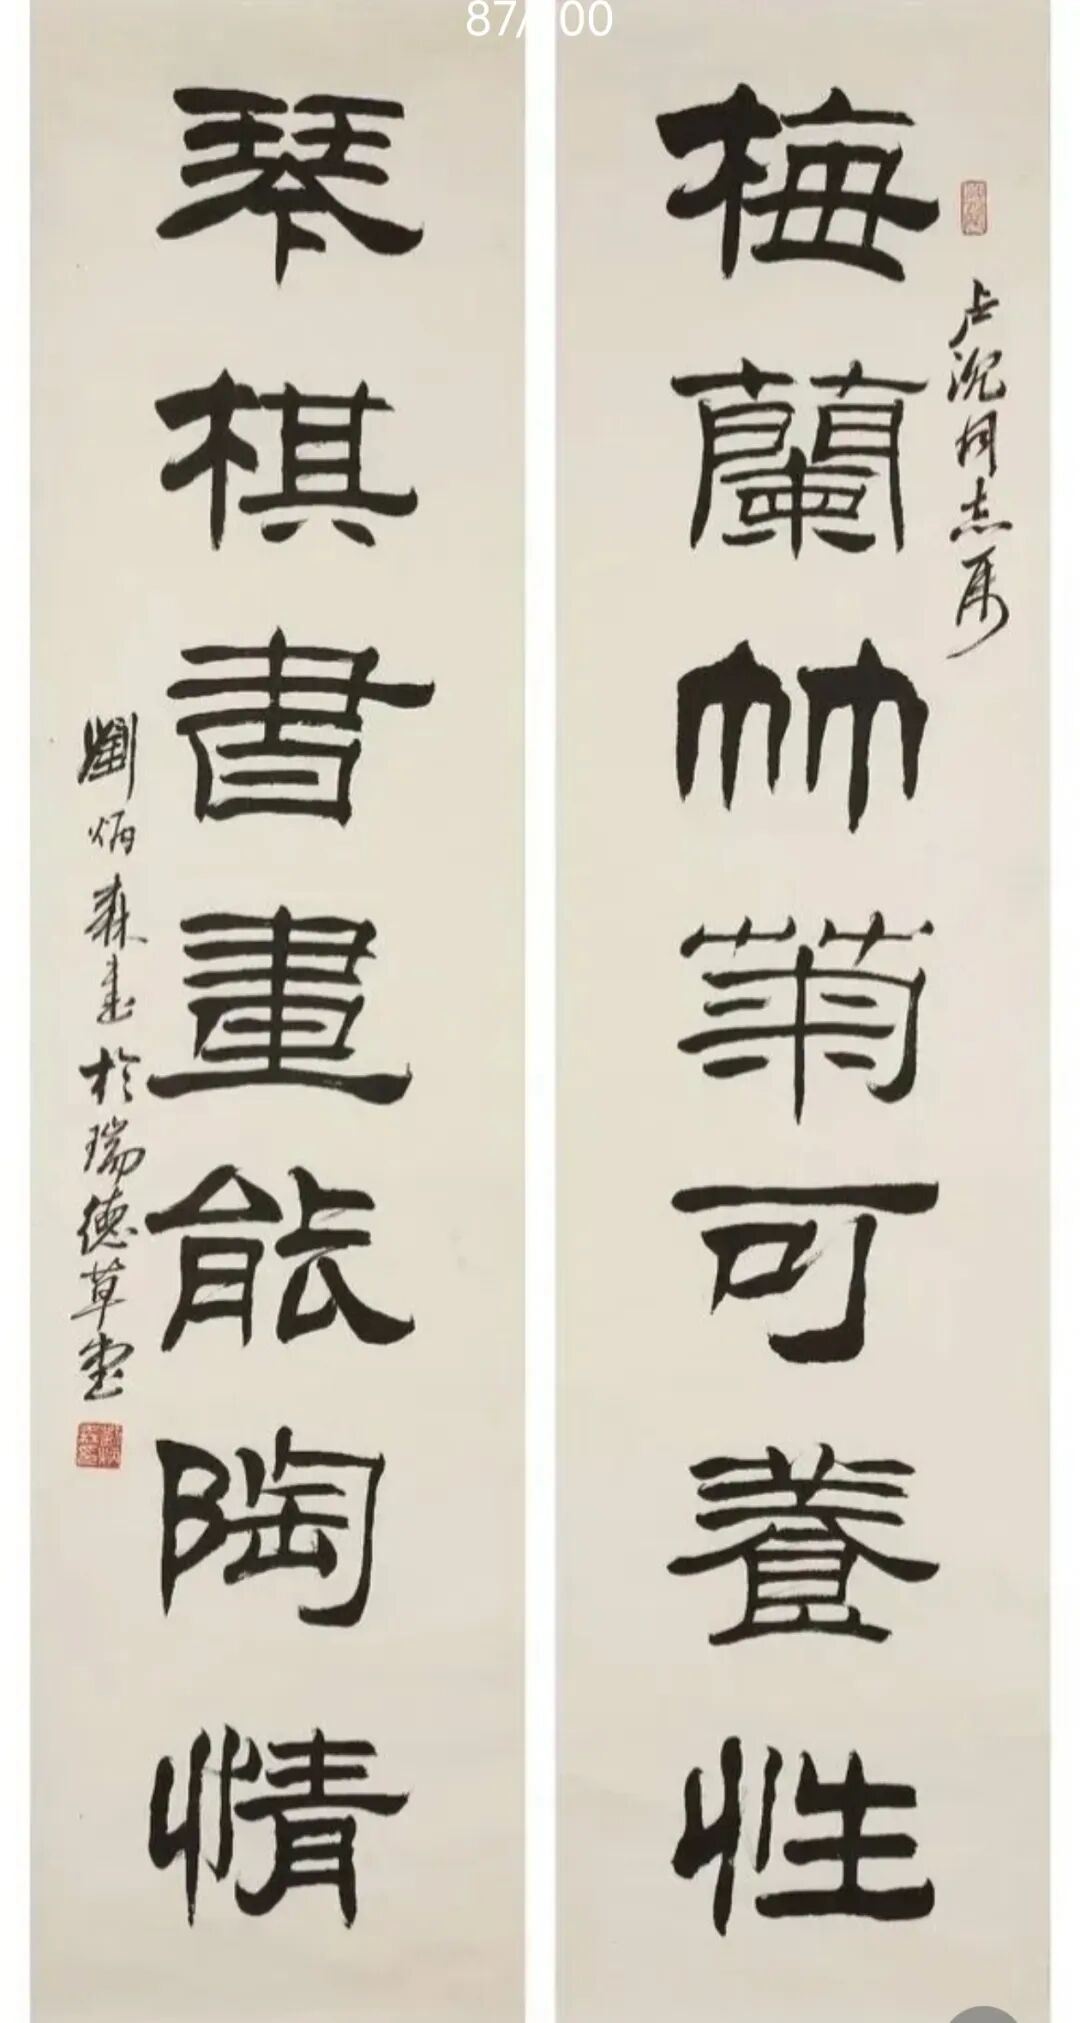 87/100
梅蘭竹菊可養性
占沉同志属
琴棋書畫能陶情
劉炳森書於瑞德草堂